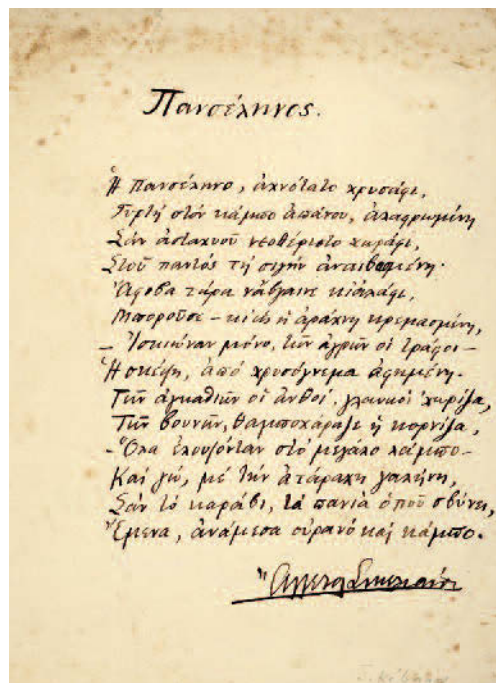 Πανσέληνος.
Ἡ πανσέληνο, ἀχνότατο χρυσάφι,
Γυρτὴ στὸν κάμπο ἀπάνου, ἀλαφρωμένη
Σὰν ἀσταχυοῦ νεοθέριστο χωράφι,
Στοῦ παντὸς τὴ σιγὴν ἀναιβεμένη.
Ἄφοβα τώρα νἄβγαινε κι' ἀλάφι,
Μποροῦσε – κι ὡς ἡ ἀράχνη κρεμασμένη,
– Ἰσκιώναν μόνο, τῶν ἀγρῶν οἱ τράφοι –
Ἡ σκέψη, ἀπὸ χρυσόγνεμα ἀφημένη.
Τῶν ἀγκαθιῶν οἱ ἀνθοί, γλαυκοί
Τῶν βουνῶν, θαμποχάραζε ἡ κορνίζα,
– Ὅλα ἐλουζόνταν στὸ μεγάλο λάμπο –
Καὶ γώ, μὲ τὴν ἀτάραχη γαλήνη,
Σὰν τὸ καράβι, τὰ πανιὰ ὁποῦ σβύνει,
Ἔμενα, ἀνάμεσα οὐρανὸ καὶ κάμπο.
Ἄγγελος Σικελιανός